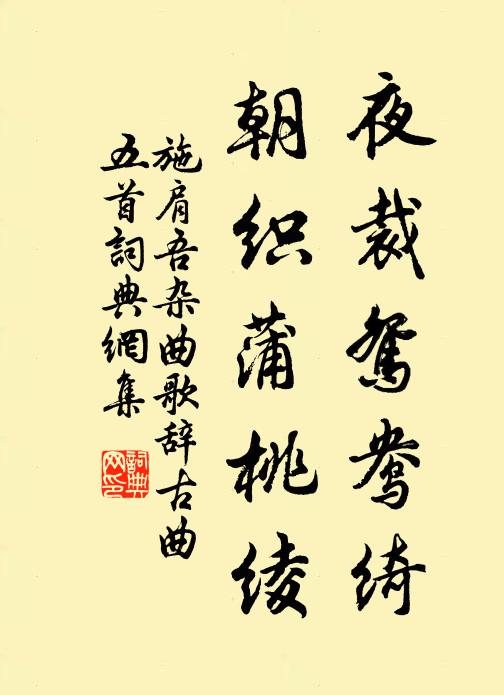 夜裁鸳鸯绮
朝织蒲桃绫
施肩吾杂曲歌辞古曲
五首詞典網集
詞典网印